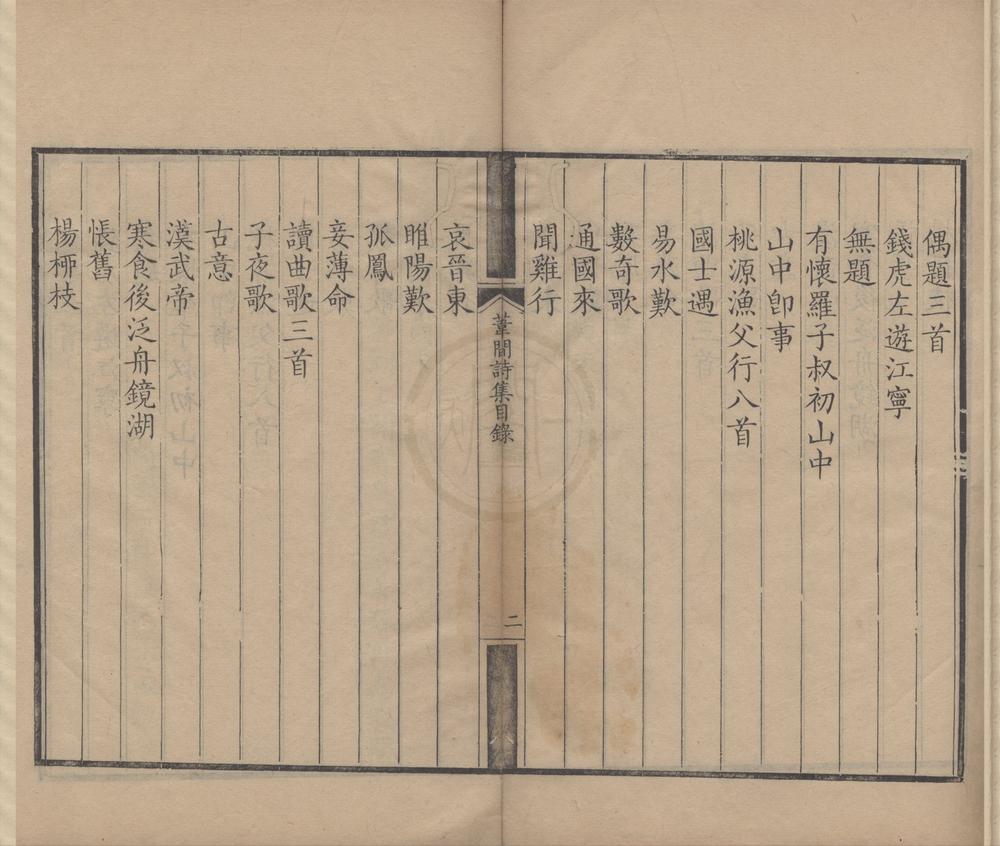 偶題三首
錢虎左遊江寧
無題
有懷羅子叔初山中
山中卽事
桃源漁父行八首
國士遇
易水歎
數奇歌
通國來
聞雞行
葦間詩集目錄
二
哀晉東
睢陽歎
孤鳳
妾薄命
讀曲歌三首
子夜歌
古意
漢武帝
寒食後泛舟鏡湖
悵舊
楊桺枝